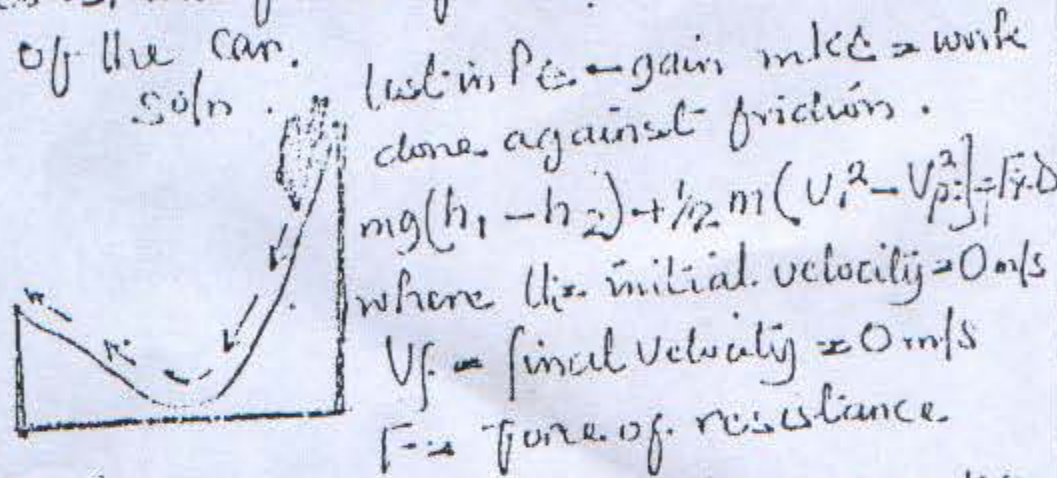 of the car.
soln.
lost in PE - gain in KE = work
done against friction.
mg(h₁ - h₂) + ½ m(U₁² - V_f²) = F × D
where Ui = initial velocity = 0 m/s
Vf = final velocity = 0 m/s
F = force of resistance